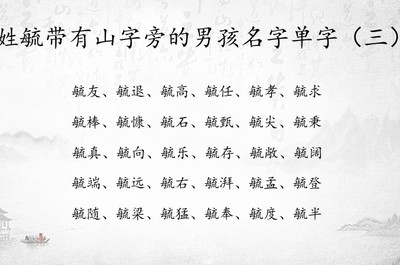 姓毓带有山字旁的男孩名字单字（三）
毓友、毓退、毓高、毓任、毓孝、毓求
毓棒、毓慷、毓石、毓甄、毓尖、毓秉
毓真、毓向、毓乐、毓存、毓敞、毓阔
毓端、毓远、毓右、毓湃、毓孟、毓登
毓随、毓梁、毓猛、毓奉、毓度、毓半